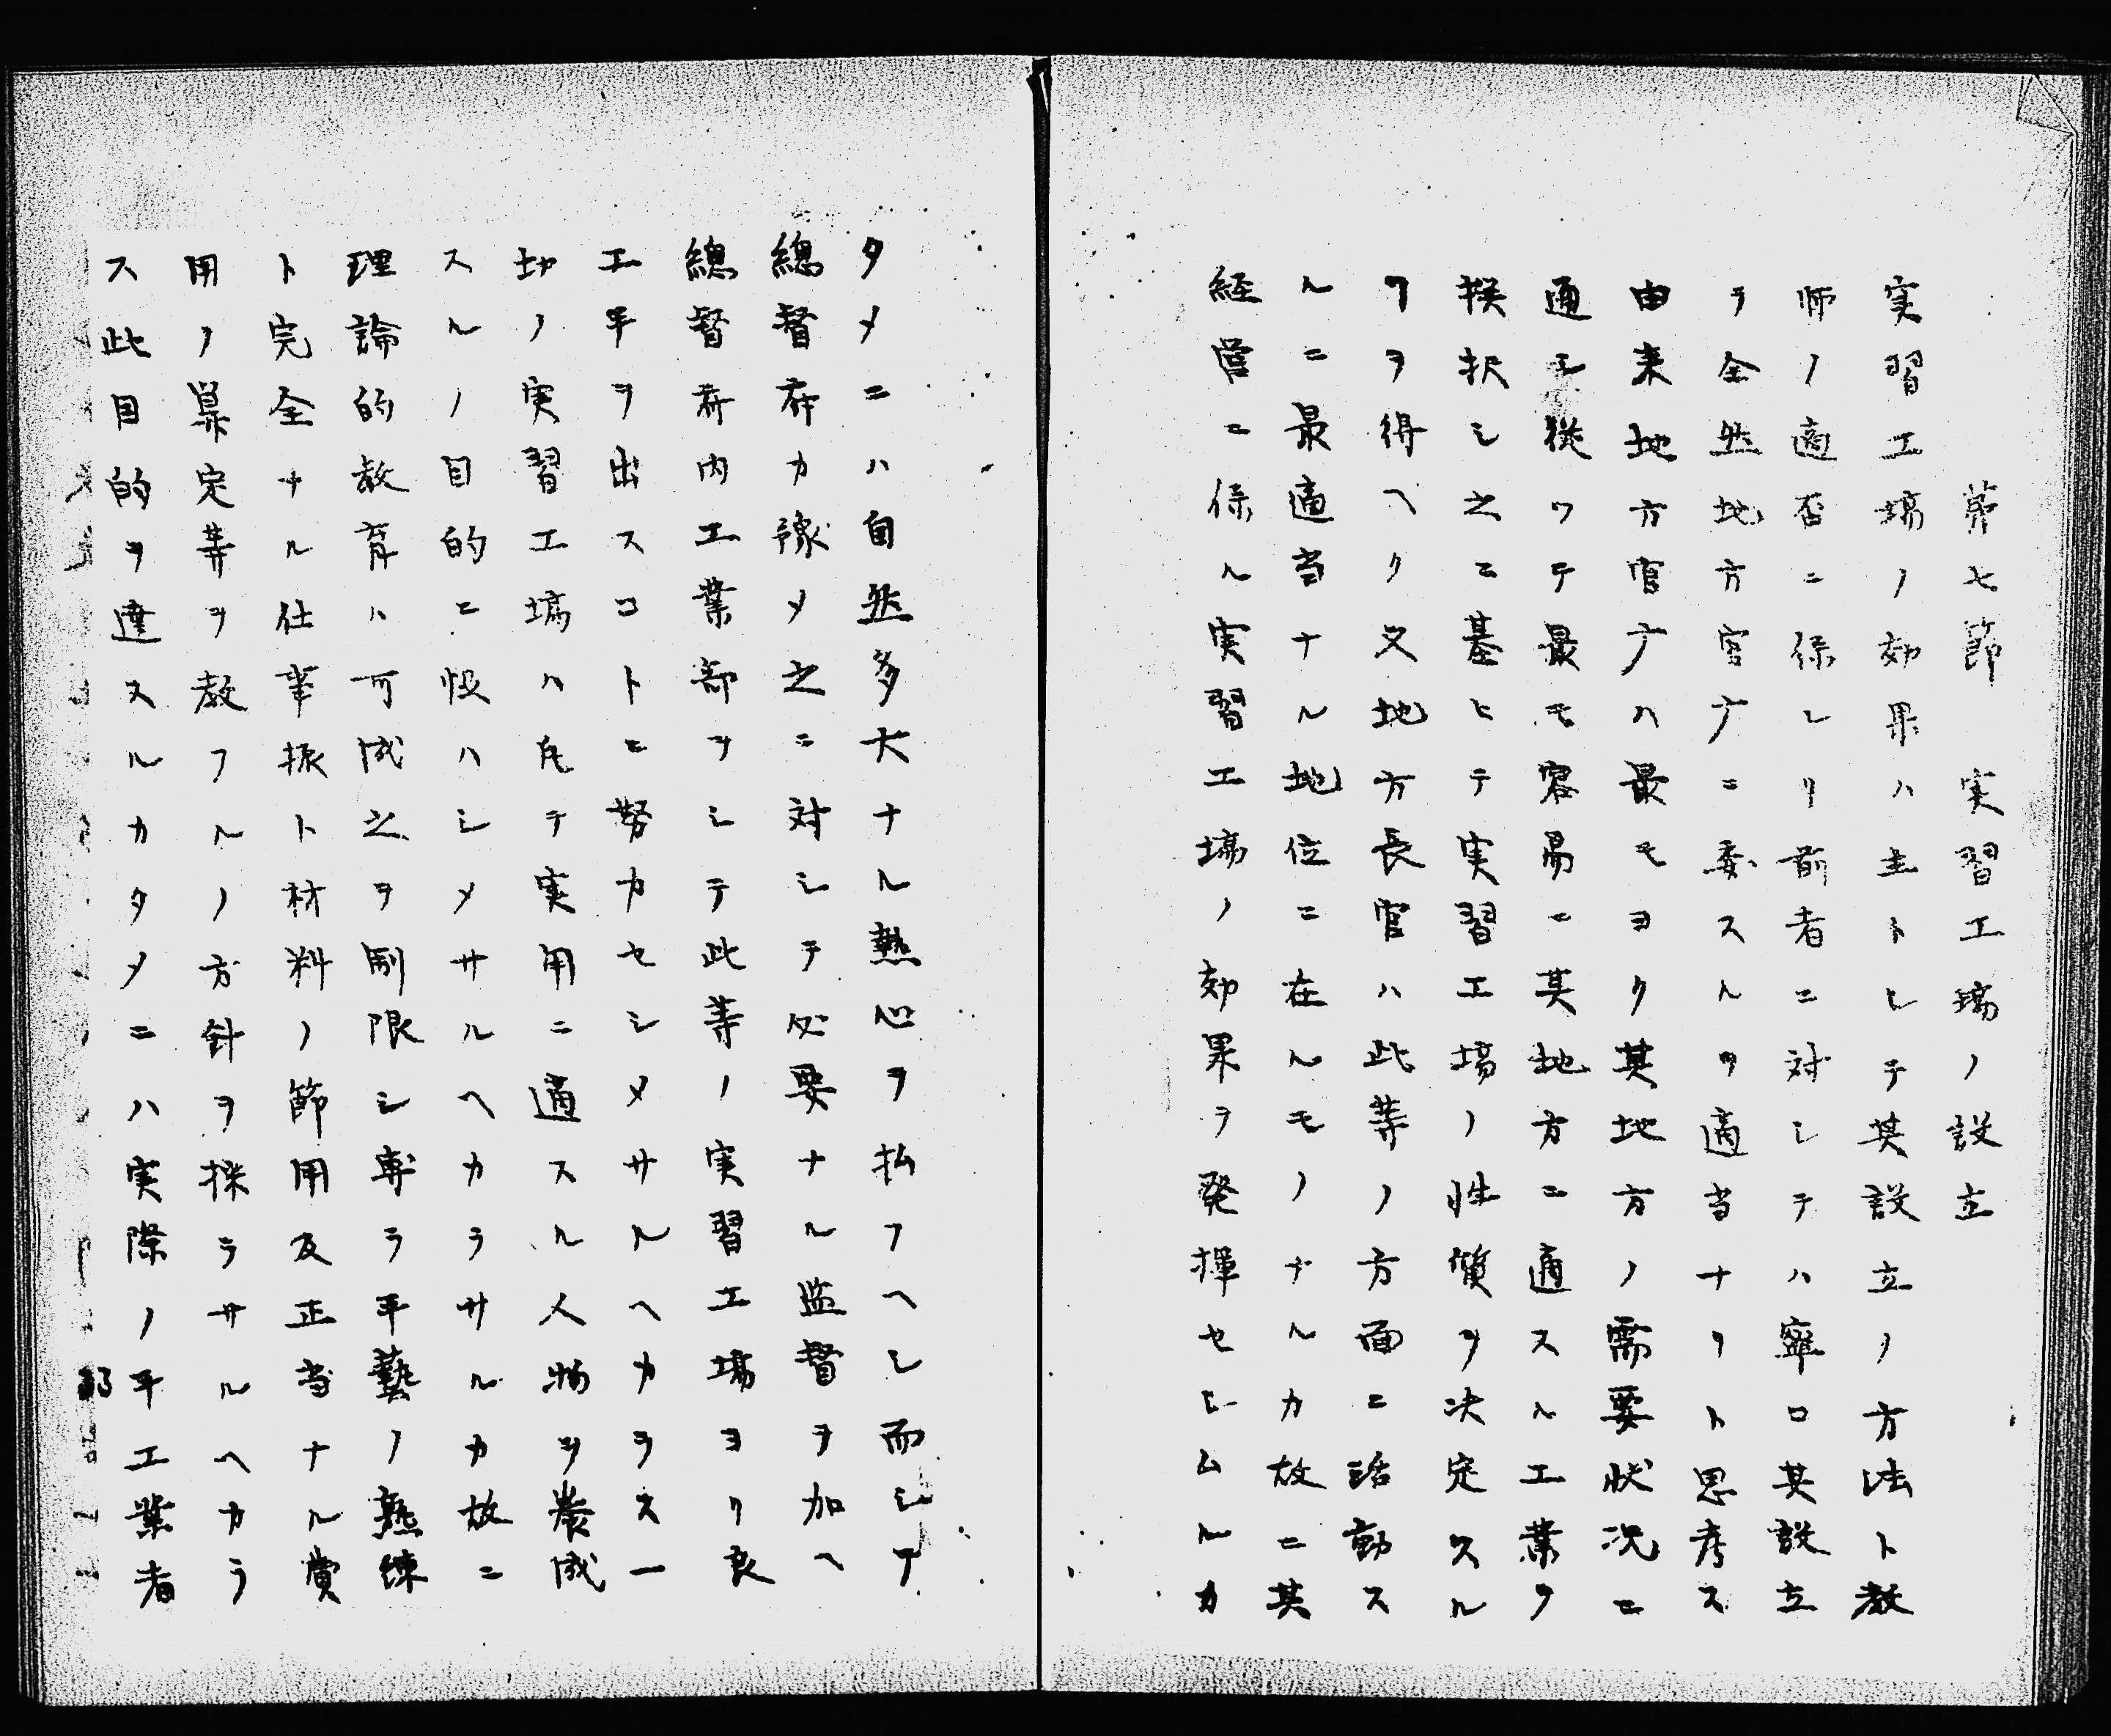 第七節　実習工場ノ設立
実習工場ノ効果ハ主トシテ其設立ノ方法ト教
師ノ適否ニ係レリ前者ニ対シテハ寧ロ其設立
ヲ全然地方官庁ニ委スルヲ適当ナリト思考ス
由来地方官庁ハ最モヨク其地方ノ需要状況ニ
通シ従ツテ最モ容易ニ其地方ニ適スル工業ヲ
撰択シ之ニ基ヒテ実習工場ノ性質ヲ決定スル
ヲ得ヘク又地方長官ハ此等ノ方面ニ活動ス
ルニ最適当ナル地位ニ在ルモノナルカ故ニ其
経営ニ係ル実習工場ノ効果ヲ発揮セシムルカ
タメニハ自然多大ナル熱心ヲ払フヘシ而シテ
總督府カ豫メ之ニ対シテ必要ナル監督ヲ加ヘ
總督府内工業部ヲシテ此等ノ実習工場ヨリ良
工手ヲ出スコトニ努力セシメサルヘカラス一
切ノ実習工場ハ凡テ実用ニ適スル人物ヲ養成
スルノ目的ニ恨ハシメサルヘカラサルカ故ニ
理論的教育ハ可成之ヲ制限シ専ラ手藝ノ熟練
ト完全ナル仕事振ト材料ノ節用及正当ナル費
用ノ算定等ヲ教フルノ方針ヲ採ラサルヘカラ
ス此目的ヲ達スルカタメニハ実際ノ手工業者